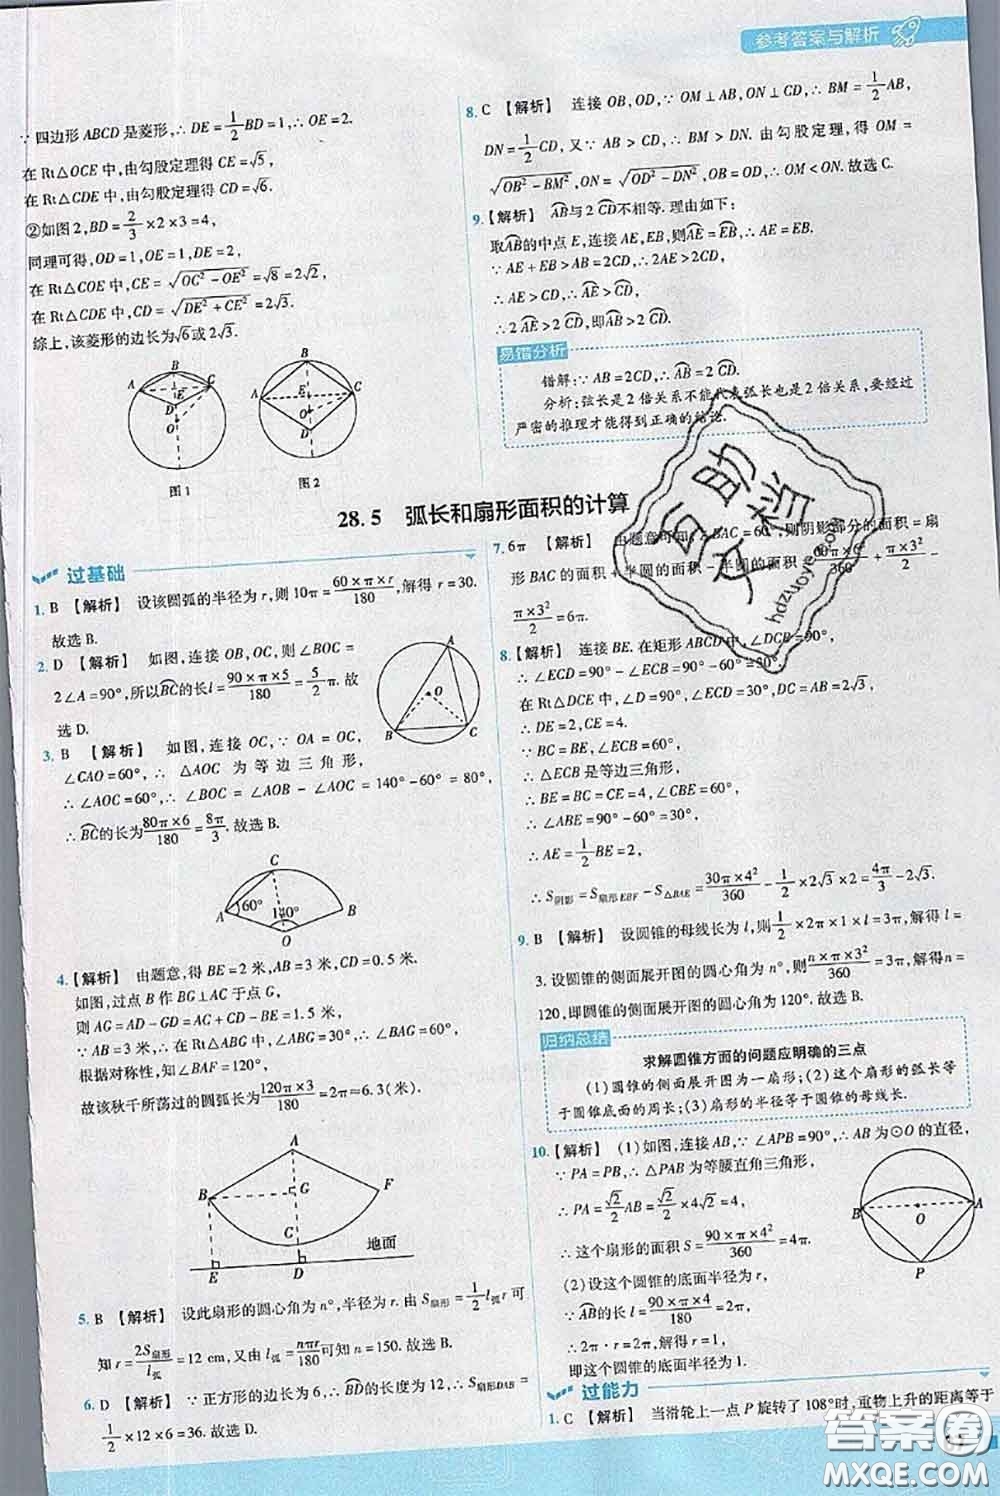 参考答案与解析
∵四边形ABCD是菱形,∴DE=1/2BD=1,∴OE=2.
在Rt△OCE中,由勾股定理得CE=√5,
在Rt△CDE中,由勾股定理得CD=√6.
②如图2,BD=2/3×2×3=4,
同理可得,OD=1,OE=1,DE=2,
在Rt△COE中,CE=√(OC²-OE²)=√8=2√2,
在Rt△CDE中,CD=√(DE²+CE²)=2√3.
综上,该菱形的边长为√6或2√3.
A
B
C
D
E
O
图1
A
B
C
E
O
D
图2
8. C 【解析】 连接OB,OD,∵OM⊥AB,ON⊥CD,∴BM=1/2AB,
DN=1/2CD,又∵AB>CD,∴BM>DN.由勾股定理,OM=
√(OB²-BM²),ON=√(OD²-DN²),OB=OD,∴OM<ON.故选C.
9.【解析】 AB͡与2CD͡不相等.理由如下:
取AB͡的中点E,连接AE,EB,则AE͡=EB͡,∴AE=EB.
∵AE+EB>AB=2CD,∴2AE>2CD,
∴AE>CD,∴AE͡>CD͡,
∴2AE͡>2CD͡,即AB͡>2CD͡.
易错分析
错解:∵AB=2CD,∴AB͡=2CD͡.
分析:弦长是2倍关系不能代表弧长也是2倍关系,要经过
严密的推理才能得到正确的结论.
28.5 弧长和扇形面积的计算
过基础
1. B 【解析】 设该圆弧的半径为r,则10π=60×π×r/180,解得r=30.
故选B.
2. D 【解析】 如图,连接OB,OC,则∠BOC=
2∠A=90°,所以BC͡的长l=90×π×5/180=5/2π.故
选D.
A
O
B
C
3. B 【解析】 如图,连接OC,∵OA=OC,
∠CAO=60°,∴△AOC为等边三角形,
∴∠AOC=60°,∴∠BOC=∠AOB-∠AOC=140°-60°=80°,
∴BC͡的长为80π×6/180=8π/3.故选B.
C
A
60°
140°
B
O
4.【解析】 由题意,得BE=2米,AB=3米,CD=0.5米.
如图,过点B作BG⊥AC于点G,
则AG=AD-GD=AC+CD-BE=1.5米,
∵AB=3米,∴在Rt△ABG中,∠ABG=30°,∠BAG=60°.
根据对称性,知∠BAF=120°,
故该秋千所荡过的圆弧长为120π×3/180=2π≈6.3(米).
A
B
G
F
C
地面
E
D
5. B 【解析】 设此扇形的圆心角为n°,半径为r.由S扇形=1/2l弧r可
知r=2S扇形/l弧=12 cm,又由l弧=nπr/180可知n=150.故选B.
6. D 【解析】 ∵正方形的边长为6,∴BD͡的长度为12,∴S扇形DAB=
1/2×12×6=36.故选D.
7. 6π 【解析】 由题意可知,∠BAC=60°,则阴影部分的面积=扇
形BAC的面积+半圆的面积-半圆的面积=60π×6²/360+π×3²/2-
π×3²/2=6π.
8.【解析】 连接BE.在矩形ABCD中,∠DCB=90°,
∴∠ECD=90°-∠ECB=90°-60°=30°.
在Rt△DCE中,∠D=90°,∠ECD=30°,DC=AB=2√3,
∴DE=2,CE=4.
∵BC=BE,∠ECB=60°,
∴△ECB是等边三角形,
∴BE=BC=CE=4,∠CBE=60°,
∴∠ABE=30°,
∴AE=1/2BE=2,
∴S阴影=S扇形EBF-S△BAE=30π×4²/360-1/2×2√3×2=4π/3-2√3.
9. B 【解析】 设圆锥的母线长为l,则1/2×2π×1×l=3π,解得l=
3.设圆锥的侧面展开图的圆心角为n°,则n×π×3²/360=3π,解得n=
120,即圆锥的侧面展开图的圆心角为120°.故选B.
归纳总结
求解圆锥方面的问题应明确的三点
(1)圆锥的侧面展开图为一扇形;(2)这个扇形的弧长等
于圆锥底面的周长;(3)扇形的半径等于圆锥的母线长.
10.【解析】 (1)如图,连接AB,∵∠APB=90°,∴AB为⊙O的直径,
∵PA=PB,∴△PAB为等腰直角三角形,
∴PA=√2/2AB=√2/2×4√2=4,
∴这个扇形的面积S=90×π×4²/360=4π.
(2)设这个圆锥的底面半径为r,
∵AB͡的长l=90×π×4/180=2π,
∴2π·r=2π,解得r=1,
即这个圆锥的底面半径为1.
B
O
A
P
过能力
1. C 【解析】 当滑轮上一点P旋转了108°时,重物上升的距离等于
作业帮
hdzuoye.com
答案圈
MXQE.COM